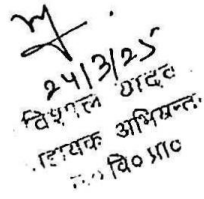 24/3/25
विशाल यादव
सहायक अभियन्ता
वि० प्रा०